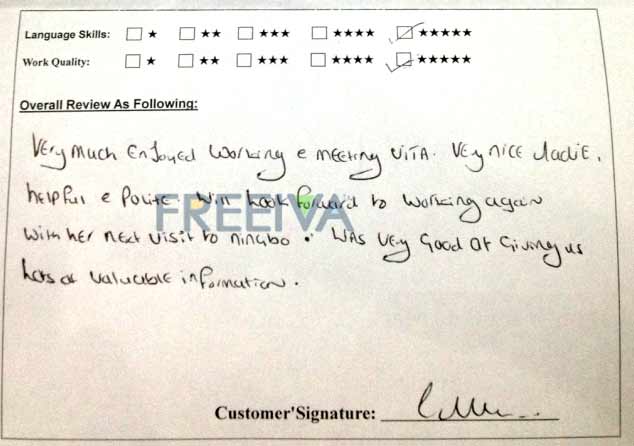 Language Skills: ☐ ★ ☐ ★★ ☐ ★★★ ☐ ★★★★ ☑ ★★★★★
Work Quality: ☐ ★ ☐ ★★ ☐ ★★★ ☐ ★★★★ ☑ ★★★★★
Overall Review As Following:
Very Much Enjoyed Working e meeting VITA. Very NICE Ladie,
helpful e Polite. Will Look forward to Working again
FREEIVA
With her next visit to ningbo. WAS Very Good at Giving us
Lots of valuable information.
Customer'Signature: